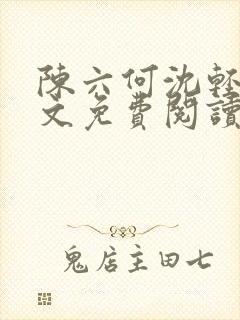 陳六何沈輕
文免費閱讀
鬼店主田七